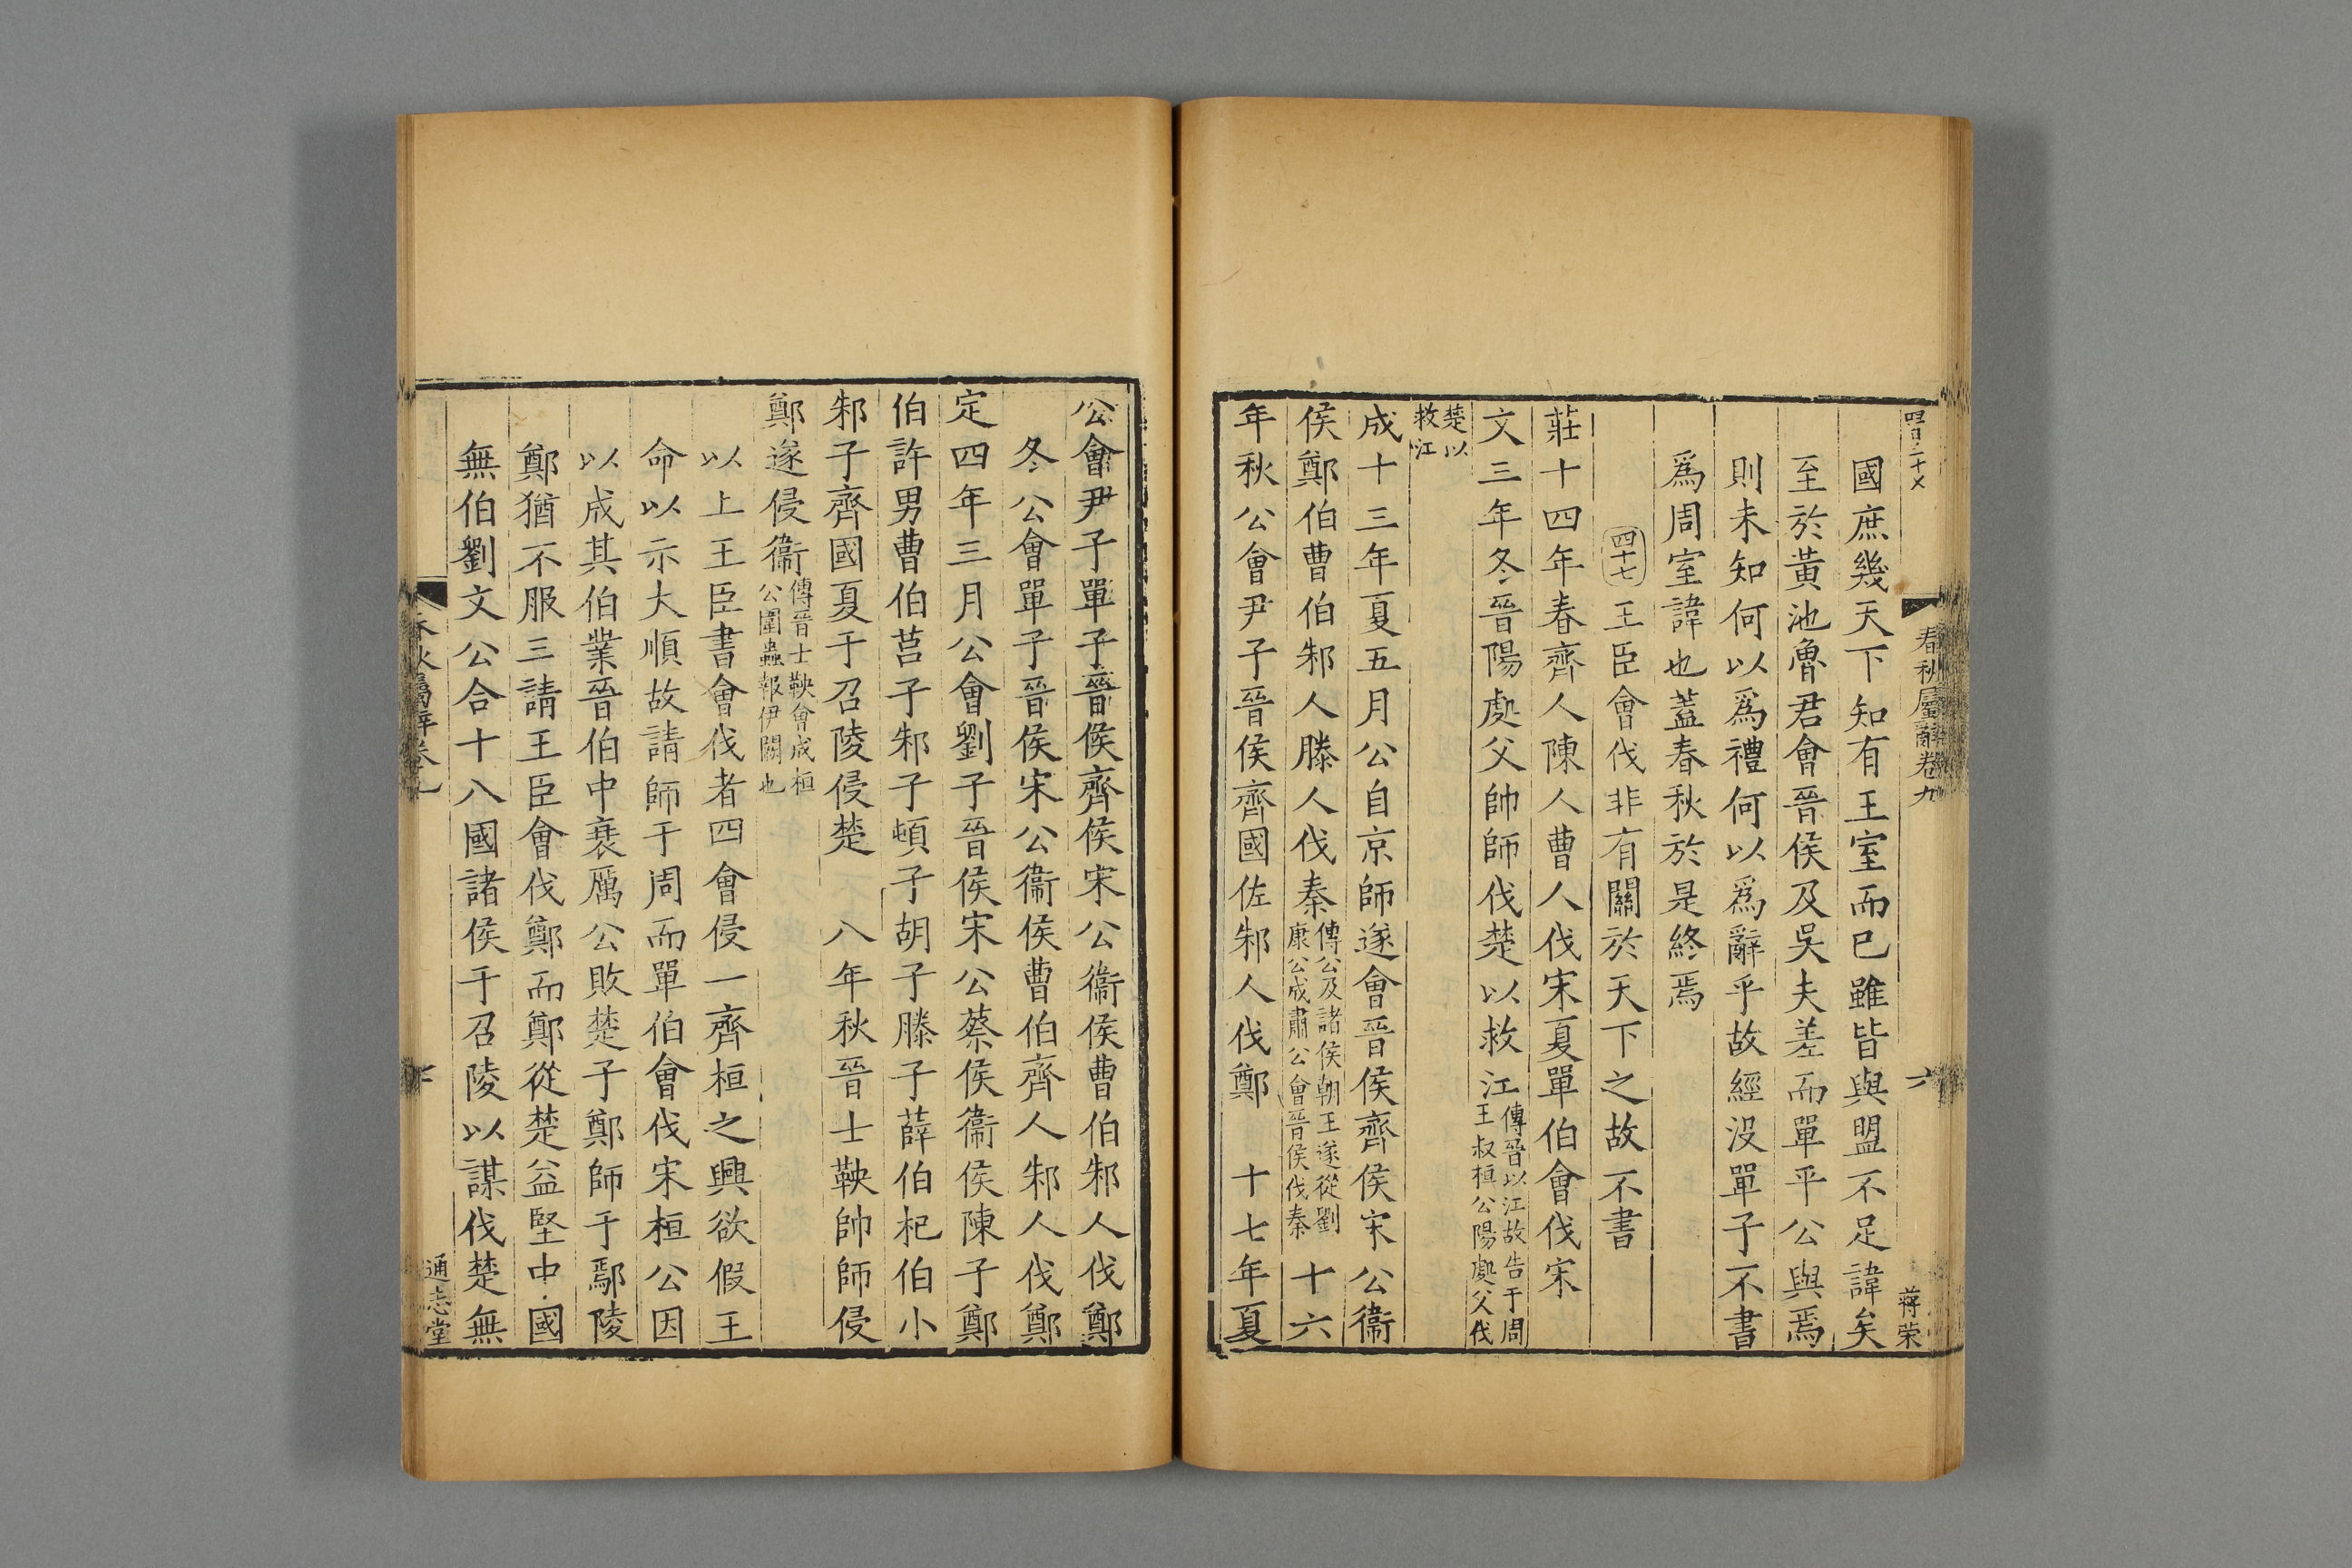 春秋屬辭卷九
六
蔣榮
國庶幾天下知有王室而已雖皆與盟不足諱矣
至於黃池魯君會晉侯及吳夫差而單平公與焉
則未知何以爲禮何以爲辭乎故經沒單子不書
爲周室諱也蓋春秋於是終焉
四十七王臣會伐非有關於天下之故不書
莊十四年春齊人陳人曹人伐宋夏單伯會伐宋
文三年冬晉陽處父帥師伐楚以救江傳晉以江故告于周王叔桓公陽處父伐
楚以救江
成十三年夏五月公自京師遂會晉侯齊侯宋公衞
侯鄭伯曹伯邾人滕人伐秦傳公及諸侯朝王遂從劉康公成肅公會晉侯伐秦 十六
年秋公會尹子晉侯齊國佐邾人伐鄭 十七年夏
公會尹子單子晉侯齊侯宋公衞侯曹伯邾人伐鄭
冬公會單子晉侯宋公衞侯曹伯齊人邾人伐鄭
定四年三月公會劉子晉侯宋公蔡侯衞侯陳子鄭
伯許男曹伯莒子邾子頓子胡子滕子薛伯杞伯小
邾子齊國夏于召陵侵楚 八年秋晉士鞅帥師侵
鄭遂侵衞傳晉士鞅會成桓公圍蟲報伊闕也
以上王臣書會伐者四會侵一齊桓之興欲假王
命以示大順故請師于周而單伯會伐宋桓公因
以成其伯業晉伯中衰厲公敗楚子鄭師于鄢陵
鄭猶不服三請王臣會伐鄭而鄭從楚益堅中國
無伯劉文公合十八國諸侯于召陵以謀伐楚無
通志堂